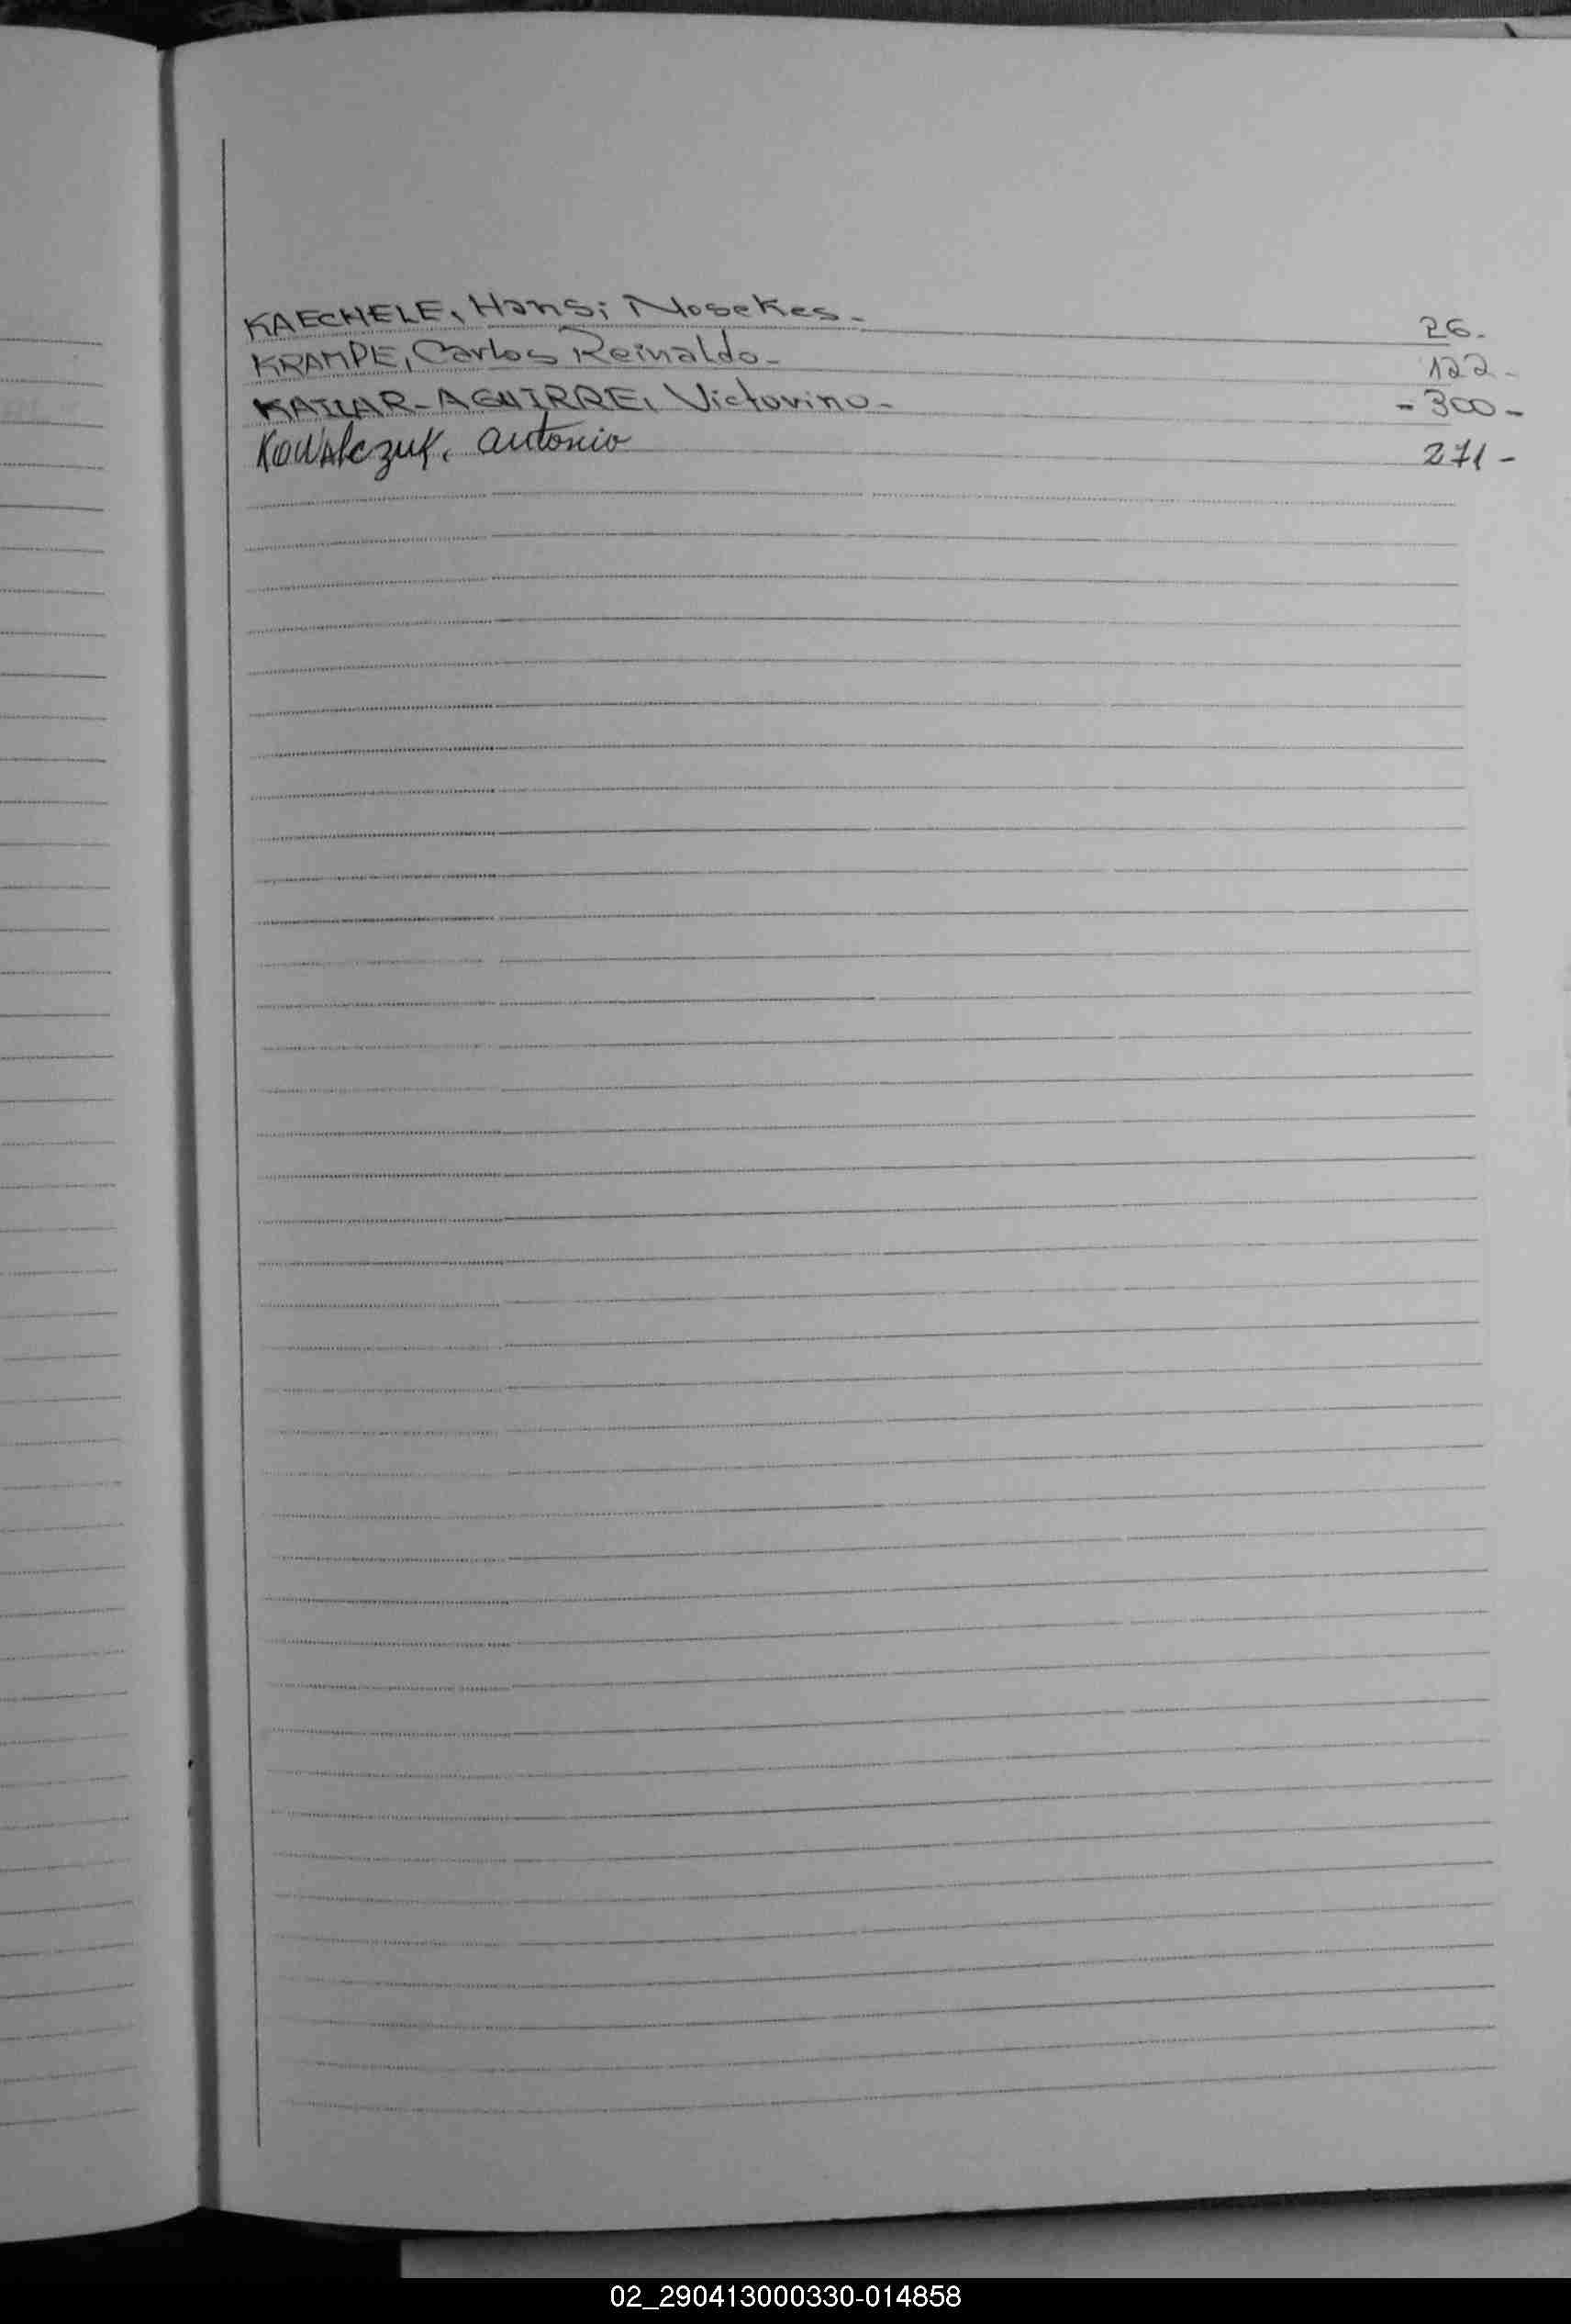 KAECHELE, Hans; Nosekes. 26.
KRAMPE, Carlos Reinaldo. 122.
AGUIRRE, Victorino. - 300 -
Kowalczuk, Antonio 271 -
02_290413000330-014858